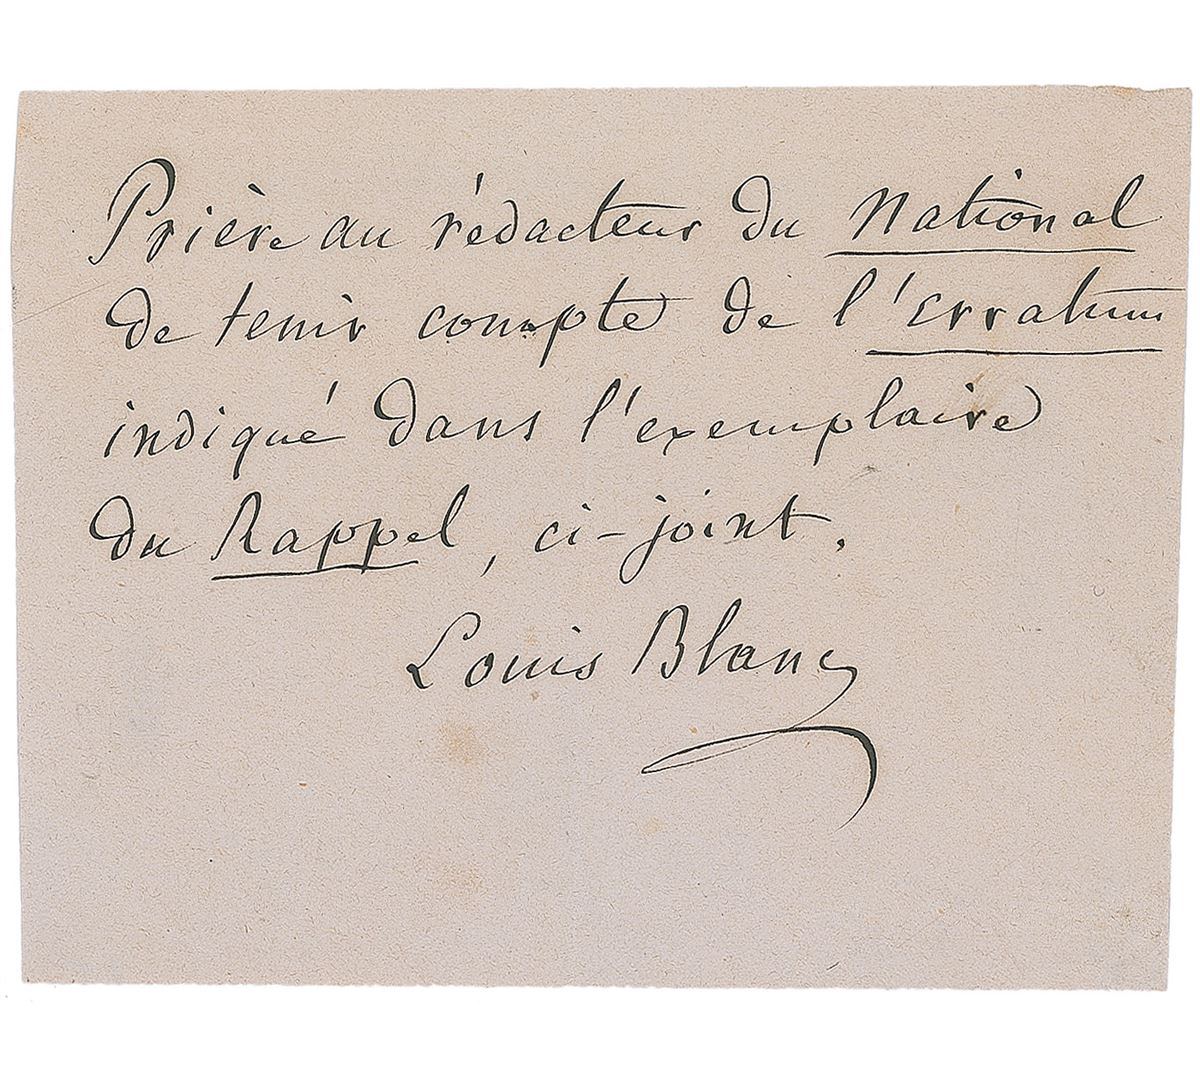 Prière au rédacteur du National
de tenir compte de l'erratum
indiqué dans l'exemplaire
du Rappel, ci-joint.
Louis Blanc